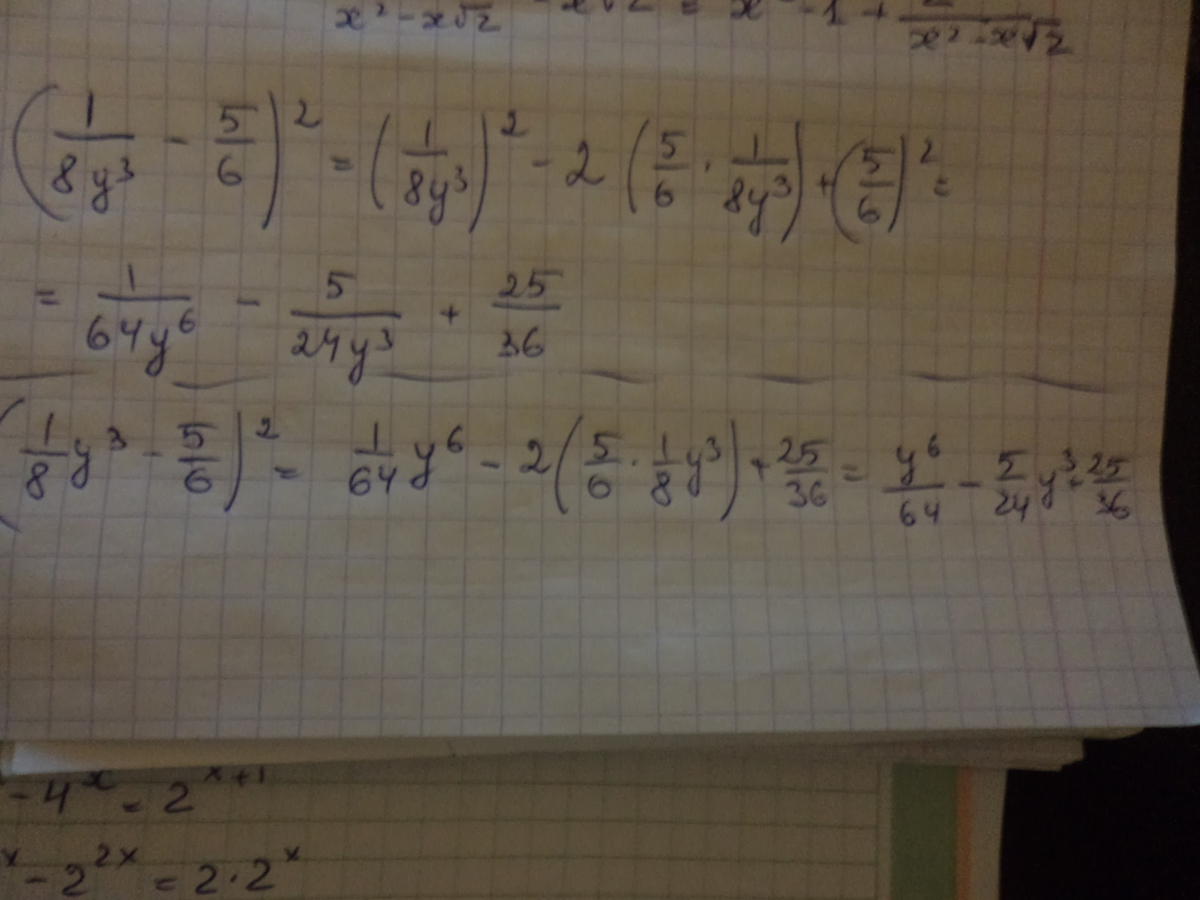 x² - x√2 - x√2 = x - 1 + x² - x√2
(1/8y³ - 5/6)² = (1/8y³)² - 2(5/6 · 1/8y³) + (5/6)² =
= 1/64y⁶ - 5/24y³ + 25/36
(1/8 y³ - 5/6)² = 1/64 y⁶ - 2(5/6 · 1/8 y³) + 25/36 = y⁶/64 - 5/24 y³ + 25/36
- 4ˣ = 2ˣ⁺¹
ˣ - 2²ˣ = 2 · 2ˣ